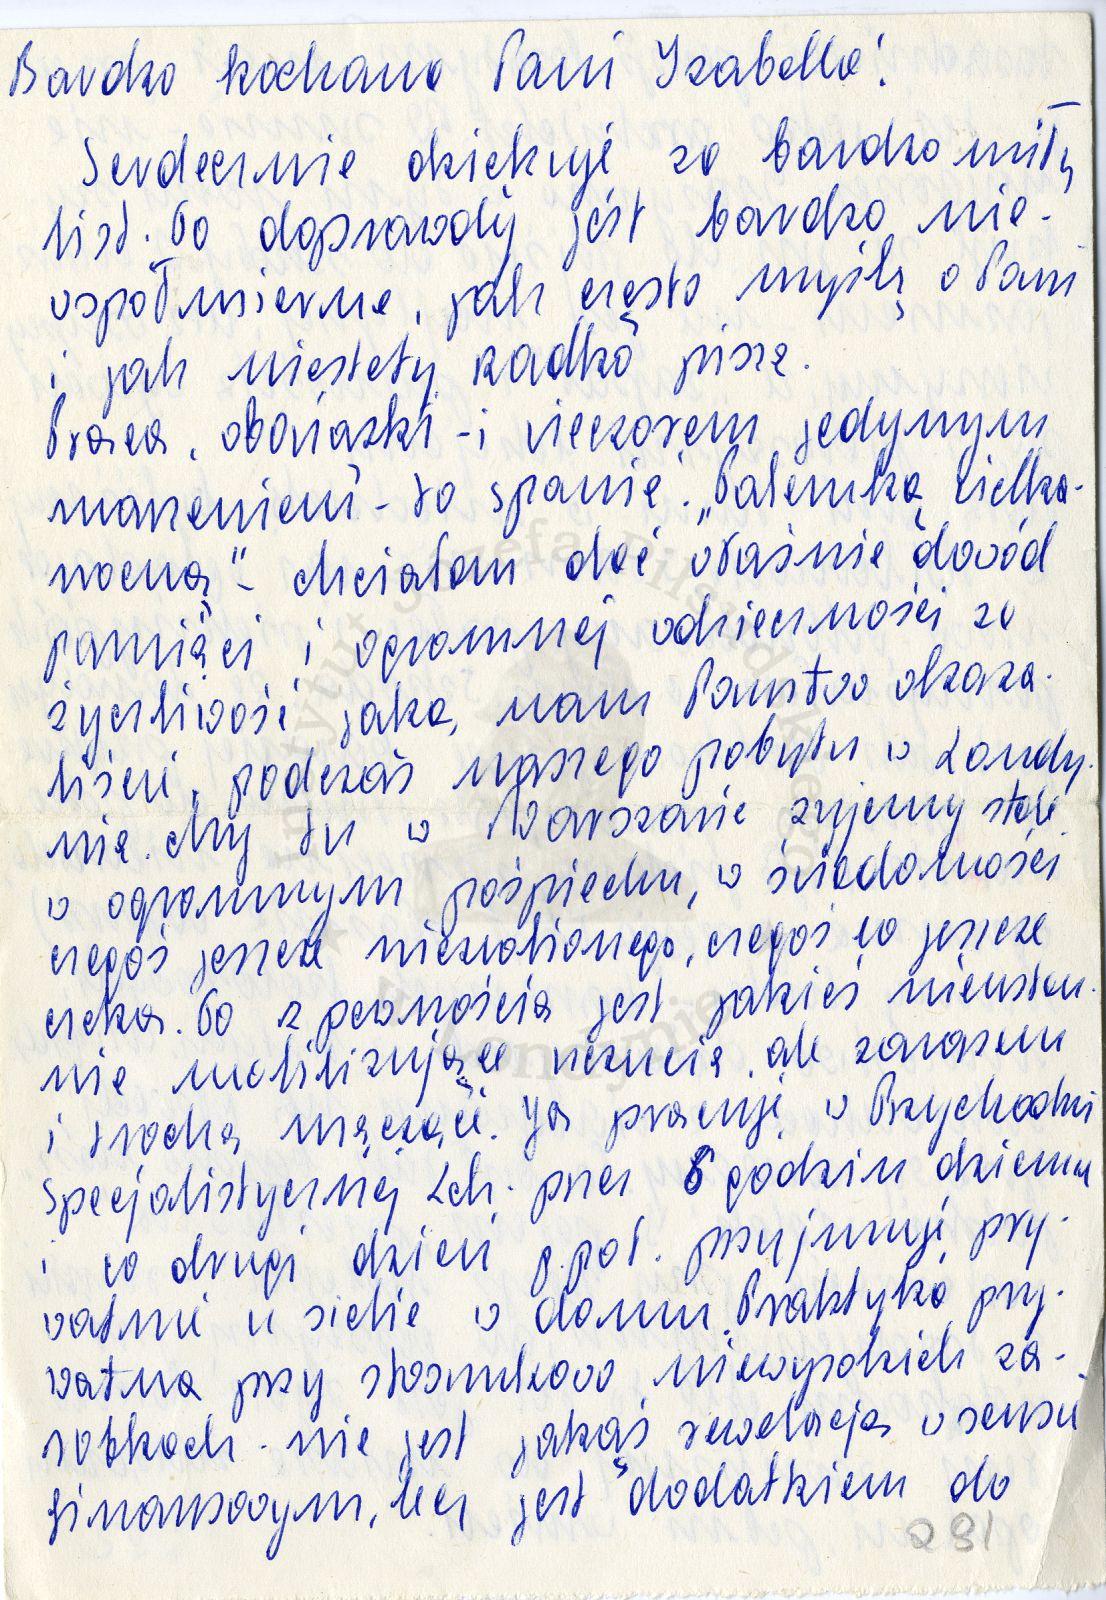 Bardzo kochana Pani Izabello!
Serdecznie dziękuję za bardzo miły
list. To doprawdy jest bardzo nie-
współmierne, jak często myślę o Pani
i jak niestety rzadko piszę.
Praca, obowiązki - i wieczorem jedynym
marzeniem - to spanie. „Palemką wielka-
nocną" - chciałam dać właśnie dowód
pamięci i ogromnej wdzięczności za
życzliwość jaką nam Państwo okaza-
liście, podczas naszego pobytu w Londy-
nie. My tu w Warszawie żyjemy stale
w ogromnym pośpiechu, w świadomości
czegoś jeszcze niezrobionego, czegoś co jeszcze
czeka. To z pewnością jest jakieś nieustan-
nie mobilizujące uczucie, ale zarazem
i trochę męczące. Ja pracuję w Przychodni
Specjalistycznej Lek. przez 6 godzin dziennie
i co drugi dzień p.poł. przyjmuję pry-
watnie u siebie w domu. Praktyka pry-
watna przy stosunkowo niewysokich za-
robkach - nie jest jakąś rewelacją w sensie
finansowym, lecz jest dodatkiem do
291
Instytut Józefa Piłsudskiego
w Londynie